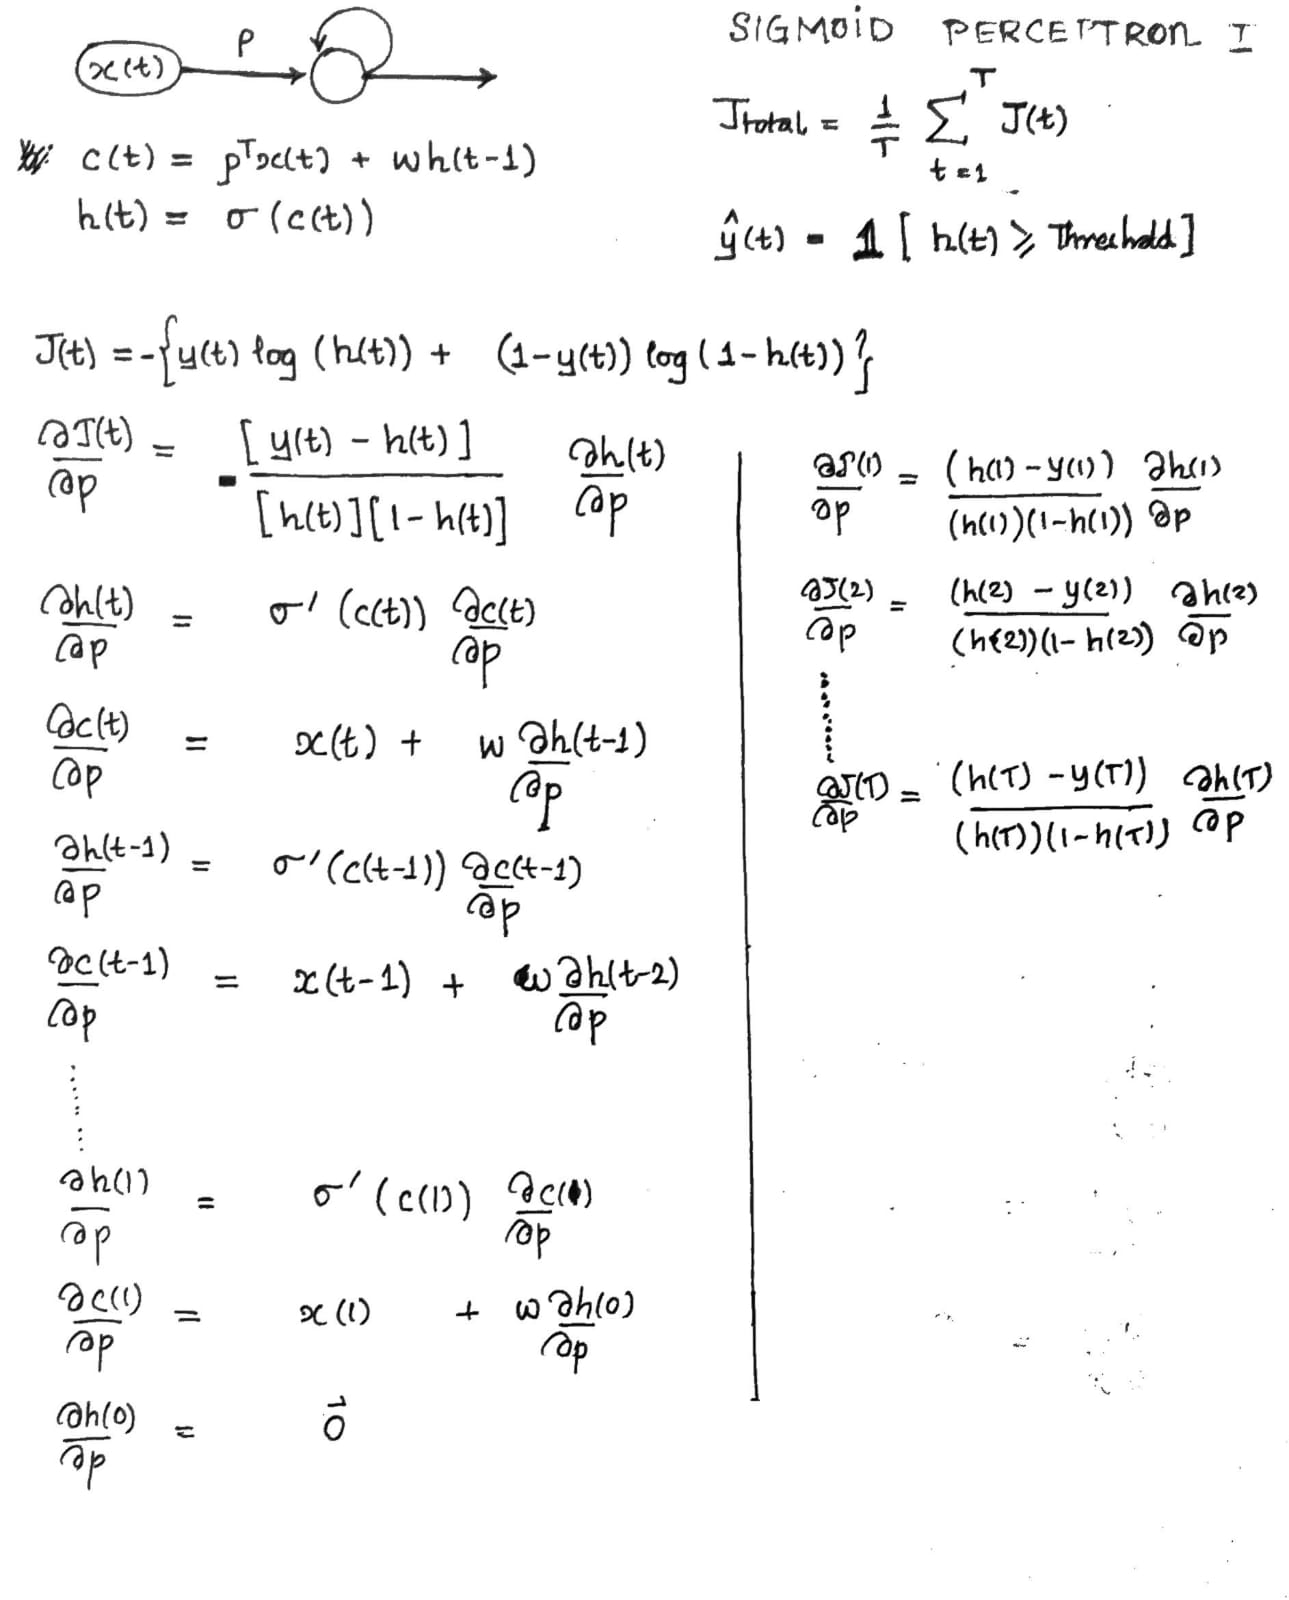 SIGMOID PERCEPTRON I
x(t) p
J_total = 1/T Σ_{t=1}^{T} J(t)
c(t) = p^T x(t) + wh(t-1)
h(t) = σ(c(t))
ŷ(t) = 𝟙[h(t) ⩾ Threshold]
J(t) = -{y(t) log (h(t)) + (1-y(t)) log(1-h(t))}
∂J(t)/∂p = - [y(t) - h(t)] / [h(t)][1-h(t)] ∂h(t)/∂p
∂h(t)/∂p = σ'(c(t)) ∂c(t)/∂p
∂c(t)/∂p = x(t) + w ∂h(t-1)/∂p
∂h(t-1)/∂p = σ'(c(t-1)) ∂c(t-1)/∂p
∂c(t-1)/∂p = x(t-1) + w ∂h(t-2)/∂p
........
∂h(1)/∂p = σ'(c(1)) ∂c(1)/∂p
∂c(1)/∂p = x(1) + w ∂h(0)/∂p
∂h(0)/∂p = 0⃗
∂J(1)/∂p = (h(1) - y(1)) / (h(1))(1-h(1)) ∂h(1)/∂p
∂J(2)/∂p = (h(2) - y(2)) / (h(2))(1-h(2)) ∂h(2)/∂p
........
∂J(T)/∂p = (h(T) - y(T)) / (h(T))(1-h(T)) ∂h(T)/∂p